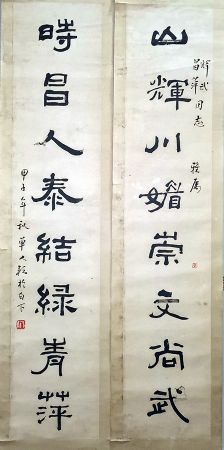 山輝川媚崇文尚武
輝武
昌萍同志
雅属
時昌人泰結緑青萍
甲子年秋單人耘於白下